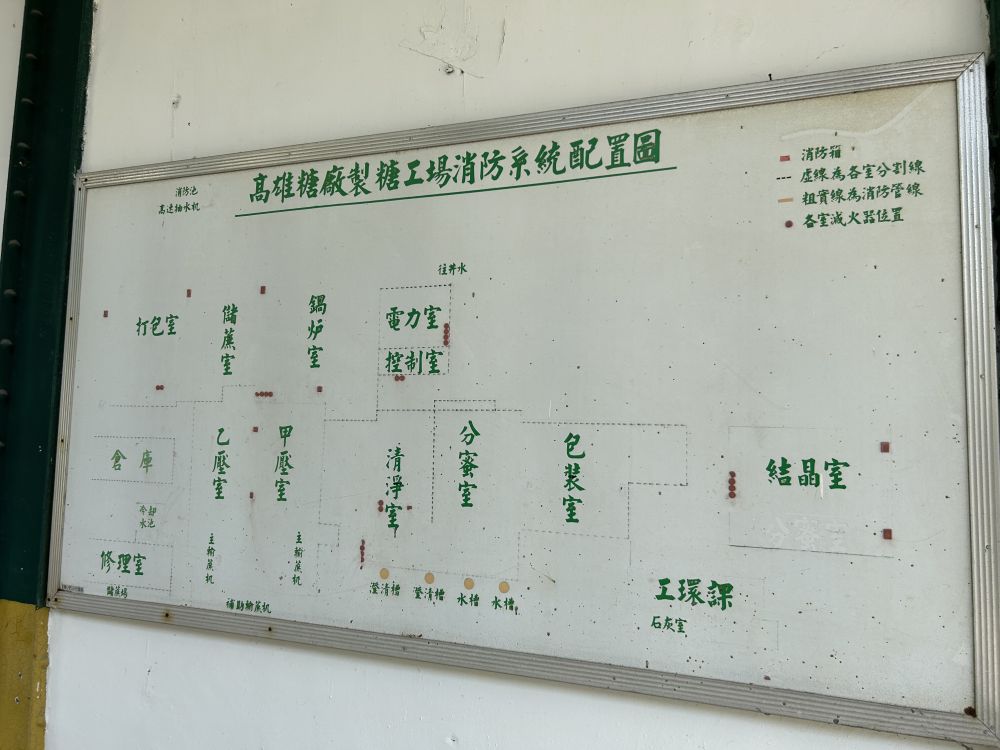 高雄糖廠製糖工場消防系統配置圖
消防箱
虛線為各室分割線
粗實線為消防管線
各室滅火器位置
消防池
高速抽水机
往井水
打包室
儲蔗室
鍋炉室
電力室
控制室
倉庫
乙壓室
甲壓室
清淨室
分蜜室
包裝室
結晶室
冷却
水池
修理室
儲蔗場
主輸蔗机
主輸蔗机
補助輸蔗机
澄清槽
澄清槽
水槽
水槽
工環課
石灰室